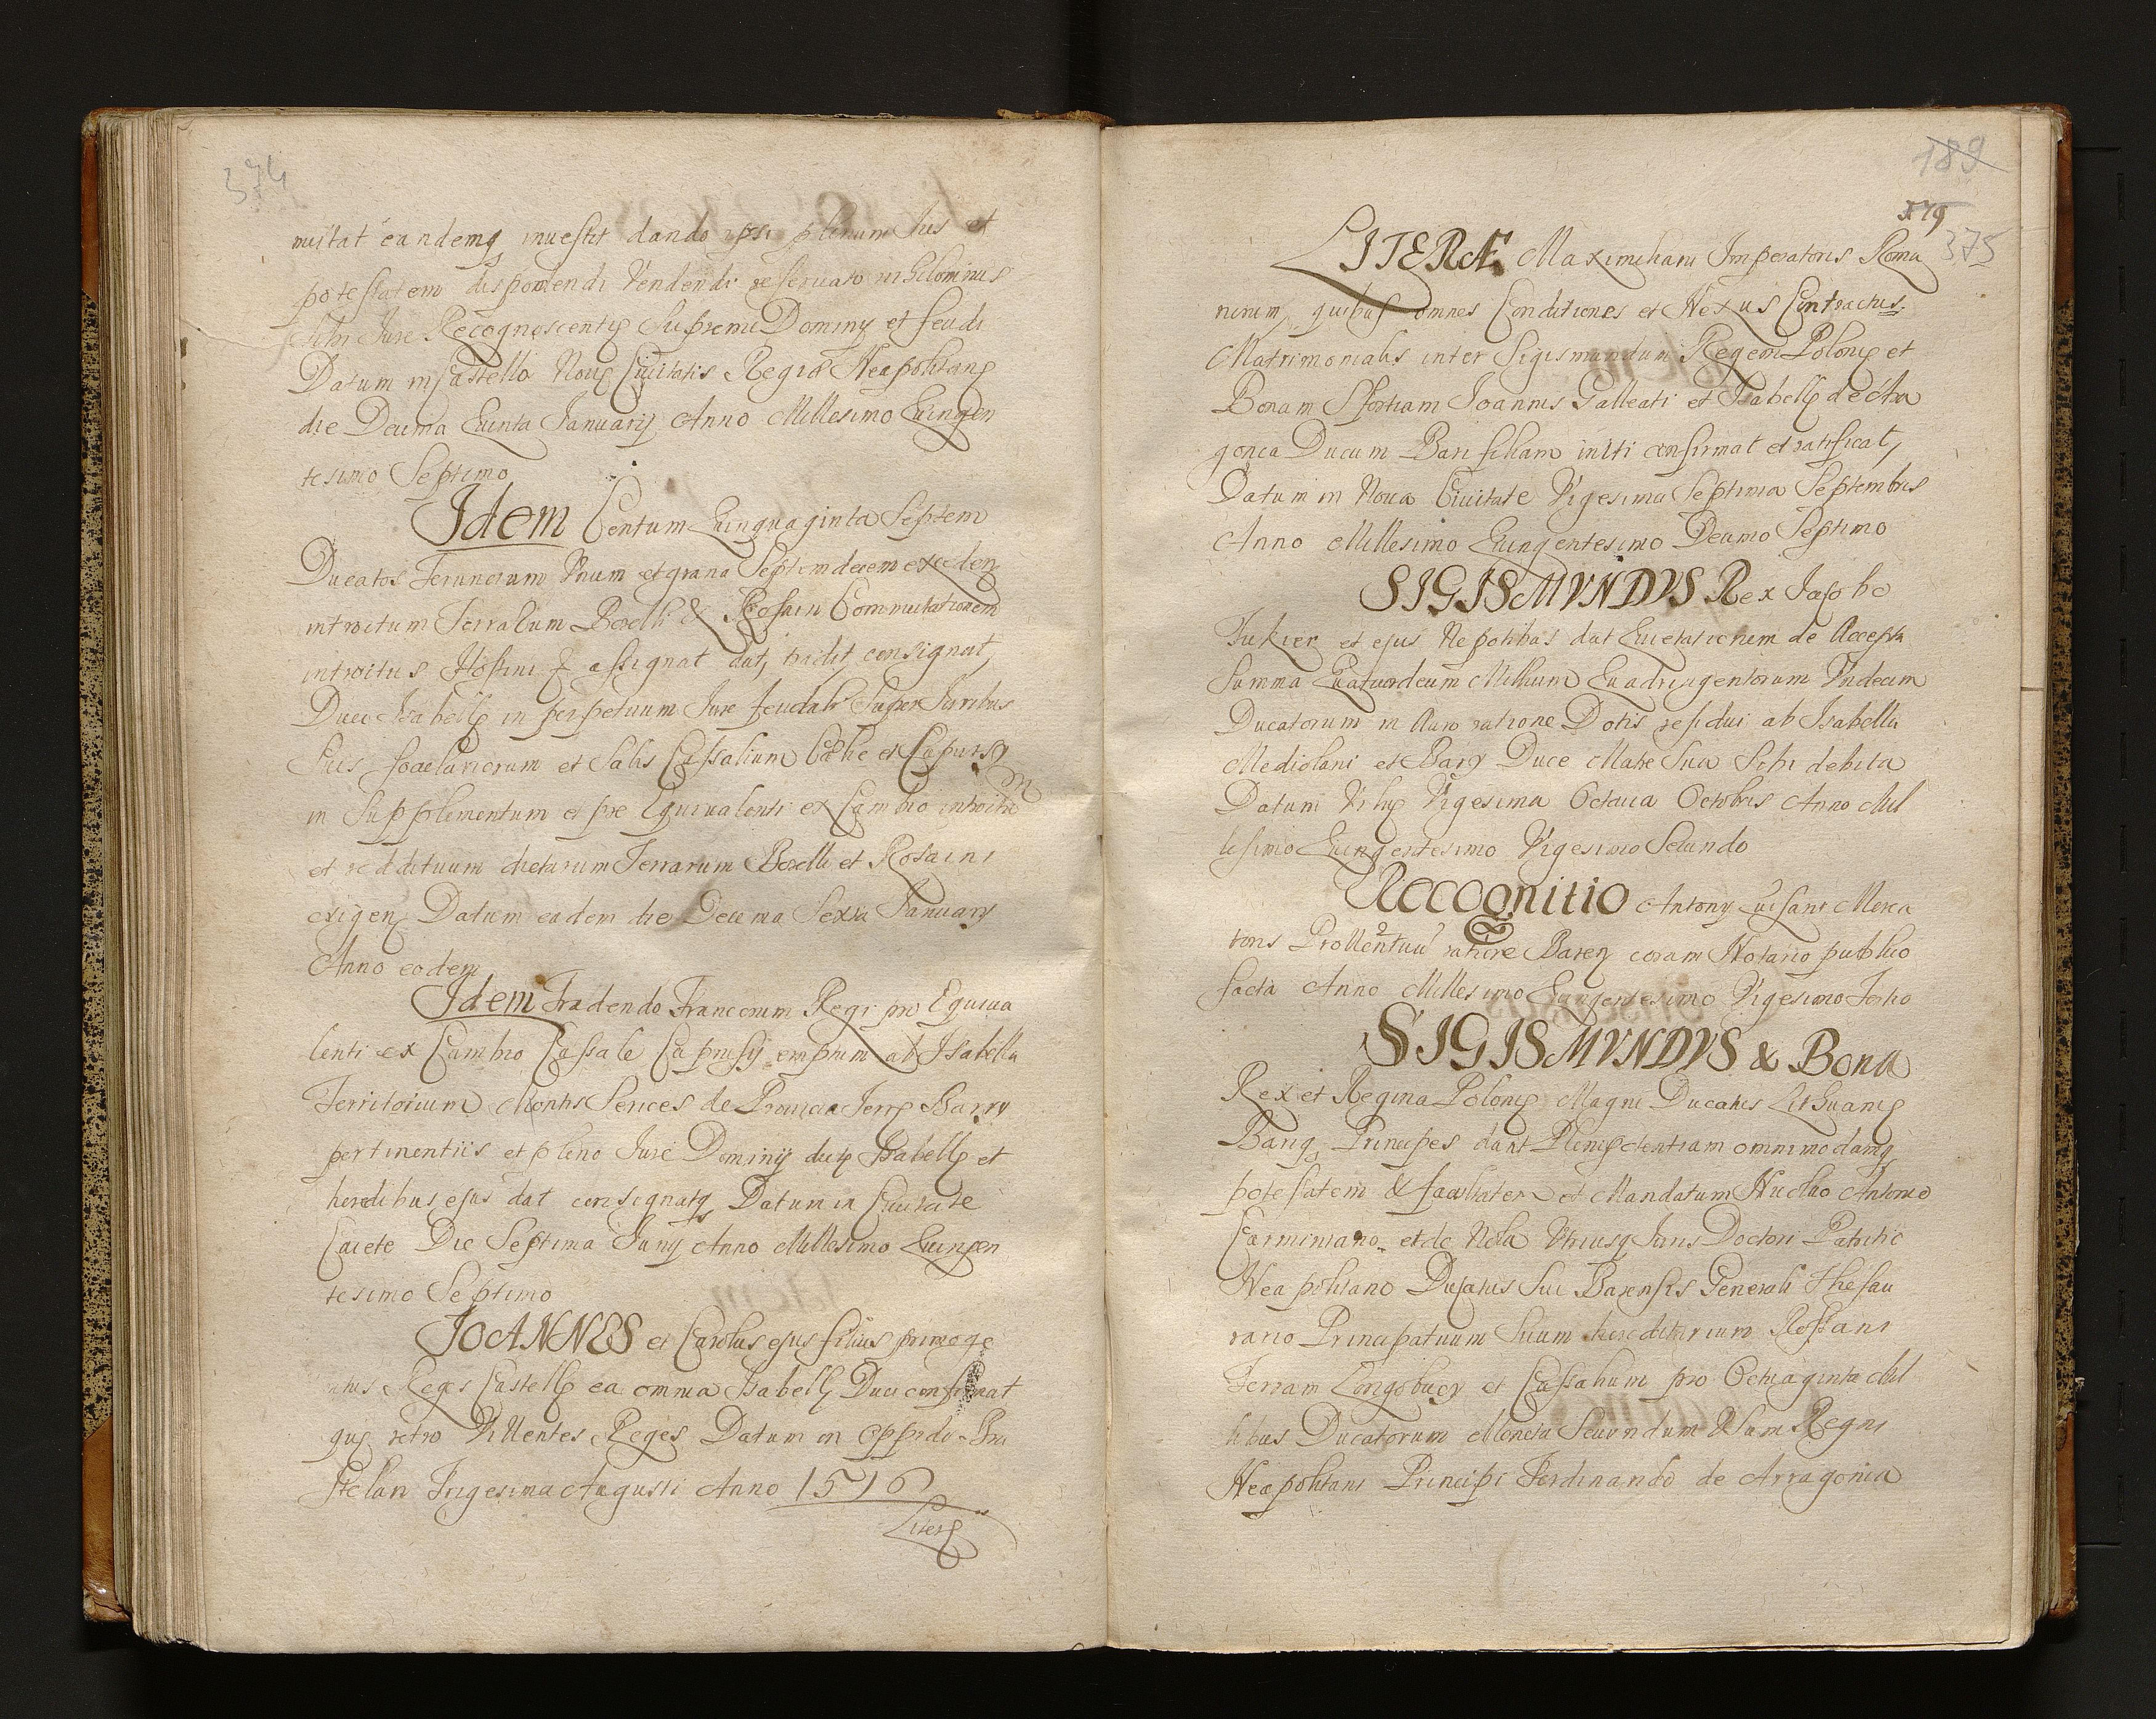 374
mittat eandemq inuestit dando ipsi plenum Ius et
potestatem disponendi Vendendi reseruato nihilominus
sibi Iure Recognoscentię Supremi Dominy et feudi
Datum in Castello Nouę Ciuitatis Regiæ Neapolitanę
die Decima Quinta Ianuarij Anno Millesimo Quingen
tesimo Septimo
Idem Centum Quinquaginta Septem
Ducatos Terunctum Vnum et grana Septemdecem exceden
introitum Terralum Boelli & Rosain Commutationem
introitus assignat dat, tradit, consignat,
Duci Isabellę in perpetuum Iure feudali super Iuribus
suis focclariorum et Salis Cassalium et Capursy
in Supplementum et pre Equiualenti ex Cambio introitū
et reddituum dictarum Terrarum Boelli et Rosaini
exigen Datum eadem die Decima Sexta Ianuary
Anno eodem
Idem Tradendo Francorum Regi pro Equiua
lenti ex Cambio Cassale Caprusij emptum ab Isabella
Territorium Montis Serices de Prouincia Terrę Barry
pertinentiis et pleno Iure Dominij dictę Isabellę et
heredibus ejus dat consignatq Datum in Ciuitate
Caiete Die Septima Iuny Anno Millesimo Quingen
tesimo Septimo
IOANNES et Carolus ejus filius primoge
nitus Reges Castellę ea omnia Isabellę Duci confirmat
quę retro Reges Datum in Oppido Bru
stelari Trigesima Augusti Anno 1516
Literę
189
379
375
LITERÆ Maximiliani Imperatoris Roma
norum, quibus omnes Conditiones et Nexus Contractus
Matrimonialis inter Sigismundum Regem Polonię et
Bonam Sfortiam Ioannis Galleati et Isabellę de Ara
gonea Ducum Bari filiam initi confirmat et ratificat,
Datum in Noua Ciuitate Vigesima Septima Septembris
Anno Millesimo Quingentesimo Decimo Septimo
SIGISMVNDVS Rex Iacobo
Fukier et ejus Nepotibus dat Quietationem de Accepta
Summa Quatuordecim Millium Quadringentorum Vndecim
Ducatorum in Auro ratione Dotis residui ab Isabella
Mediolani et Bary Duce Matre Sua Sibi debita
Datum Vilnę Vigesima Octaua Octobris Anno Mil
lesimo Quingentesimo Vigesimo Secundo
Recognitio Antony Merca
toris Baren coram Notario publico
facta Anno Millesimo Quingentesimo Vigesimo Tertio
SIGISMVNDVS & Bona
Rex et Regina Polonię Magni Ducatus Lithuanię
Bariq Principes dant Plenipotentiam omnimodamq
potestatem & facultatem et Mandatum Nuctio Antonio
Carminiano et de Nola Vtriusq Iuris Doctori Patritio
Neapolitano Ducatus Sui Barensis Generali Thesau
rario Principatuum Suum hereditarium Rossani
Terram Longobucy et Cassalium pro Octuaginta Mil
libus Ducatorum Moneta Secundum Usum Regni
Neapolitani Principi Ferdinando de Arragonia